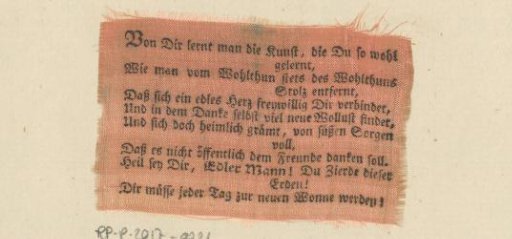 Von Dir lernt man die Kunst, die Du so wohl
gelernt,
Wie man vom Wohlthun stets des Wohlthuns
Stolz entfernt,
Daß sich ein edles Herz freywillig Dir verbindet,
Und in dem Danke selbst viel neue Wollust findet,
Und sich doch heimlich grämt, von süßen Sorgen
voll,
Daß es nicht öffentlich dem Freunde danken soll.
Heil sey Dir, Edler Mann! Du Zierde dieser
Erden!
Dir müsse jeder Tag zur neuen Wonne werden!
RP-P-2017-